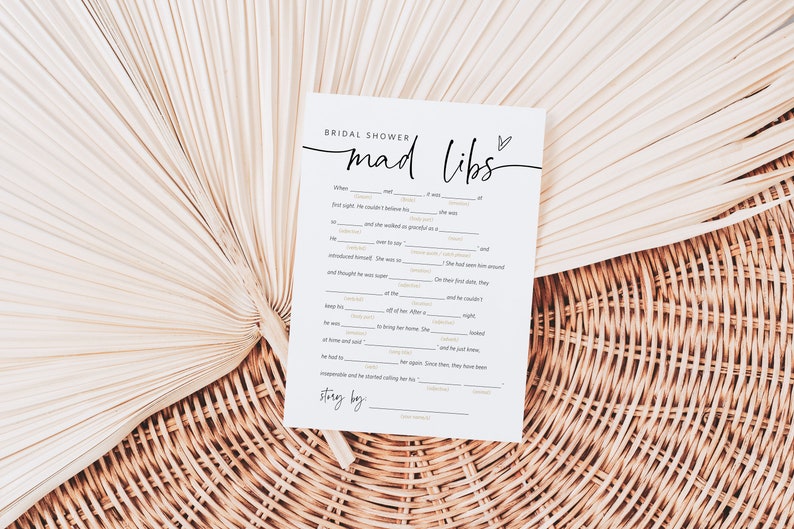 BRIDAL SHOWER
mad libs
When __________ met_________, it was __________ at
(Groom) (Bride) (emotion)
first sight. He couldn't believe his ________ she was
(body part)
so ________ and she walked as graceful as a ____________
(adjective) (noun)
He ____________ over to say "______________________" and
(verb/ed) (movie quote / catch phrase)
introduced himself. She was so ____________! She had seen him around
(emotion)
and thought he was super ____________. On their first date, they
(adjective)
________________ at the ______________ and he couldn't
(verb/ed) (location)
keep his __________ off of her. After a __________ night,
(body part) (adjective)
he was __________ to bring her home. She __________ looked
(emotion) (adverb)
at home and said "______________________" and he just knew,
(song title)
he had to ________________ her again. Since then, they have been
(verb)
inseperable and he started calling her his "____________ ___________.
(adjective) (animal)
story by: ______________________
(your name/s)